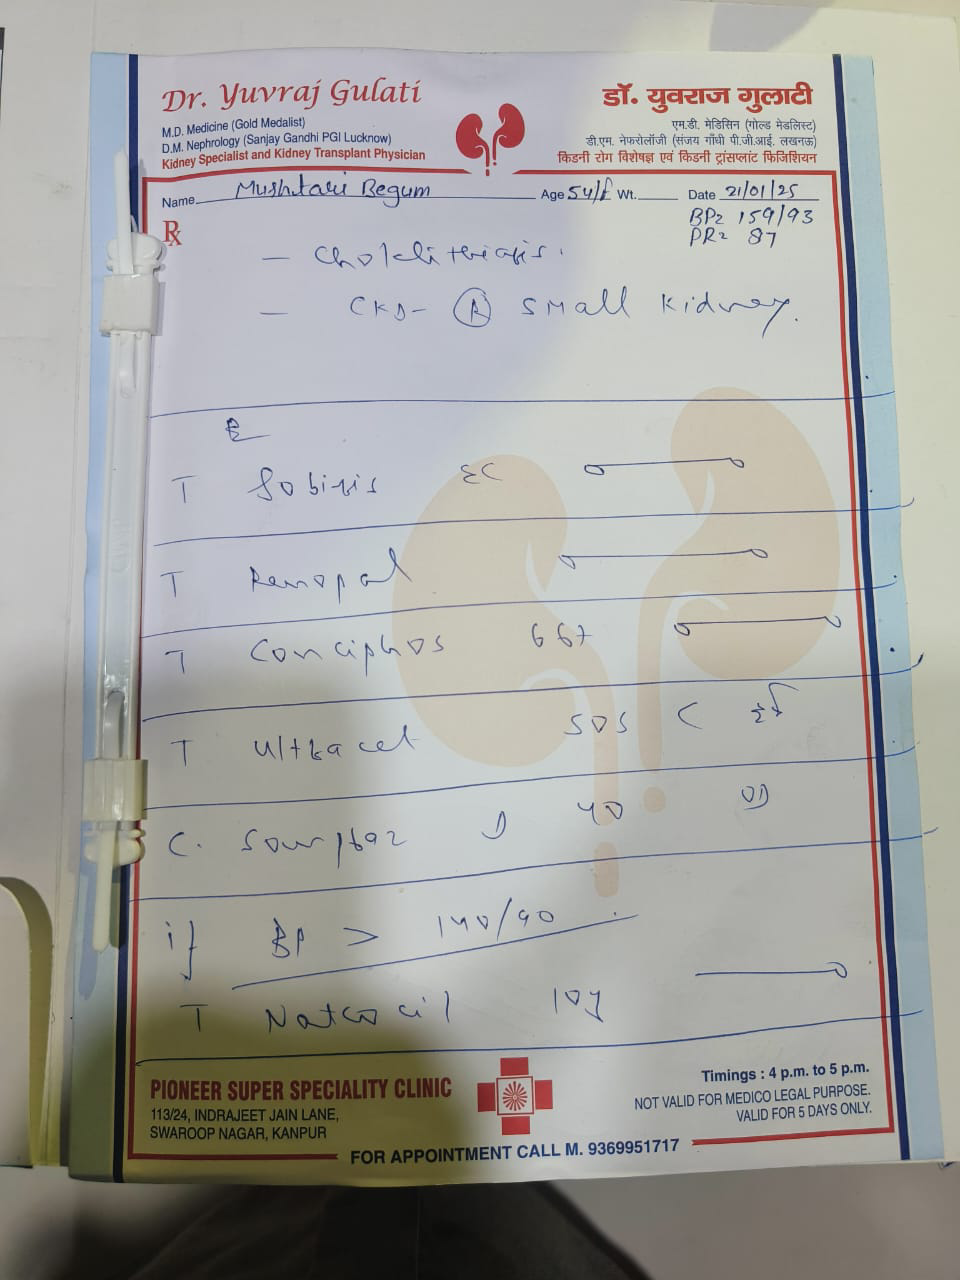 Dr. Yuvraj Gulati
M.D. Medicine (Gold Medalist)
D.M. Nephrology (Sanjay Gandhi PGI Lucknow)
Kidney Specialist and Kidney Transplant Physician
डॉ. युवराज गुलाटी
एम.डी. मेडिसिन (गोल्ड मेडलिस्ट)
डी.एम. नेफरोलॉजी (संजय गाँधी पी.जी.आई. लखनऊ)
किडनी रोग विशेषज्ञ एवं किडनी ट्रांसप्लांट फिजिशियन
Name Mushtari Begum Age 54/f Wt. Date 21/01/25
BP= 159/93
PR= 87
Rx
- CKD- (R) Small Kidney.
T Sobisis
T Renopal
T Conciphos 667
T Ultracet SOS
C. D 40 OD
if BP > 140/90
T 10mg
PIONEER SUPER SPECIALITY CLINIC
113/24, INDRAJEET JAIN LANE,
SWAROOP NAGAR, KANPUR
Timings : 4 p.m. to 5 p.m.
NOT VALID FOR MEDICO LEGAL PURPOSE.
VALID FOR 5 DAYS ONLY.
FOR APPOINTMENT CALL M. 9369951717